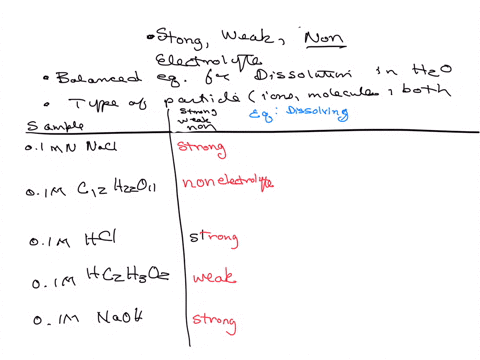 • Stong, Weak, Non
Electrolyte
• Balanced eq. for Dissolution in H2O
• Type of particle (ions, molecules, both
Sample strong weak non Eq: Dissolving
0.1 MN NaCl strong
0.1M C12 H22O11 nonelectrolyte
0.1M HCl strong
0.1M HC2H3O2 weak
0.1M NaOH strong